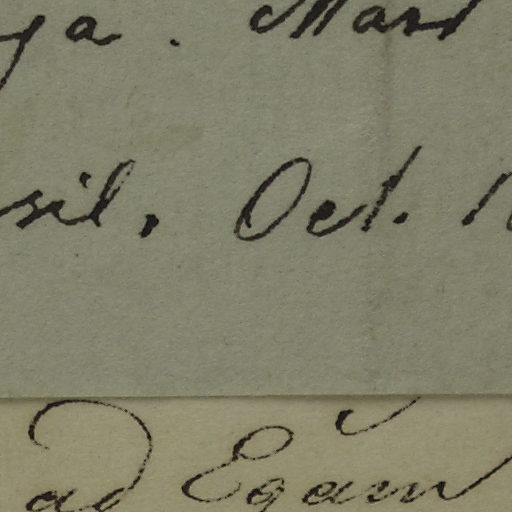 ya. Mart
sil. Oct. 1
ad Egam